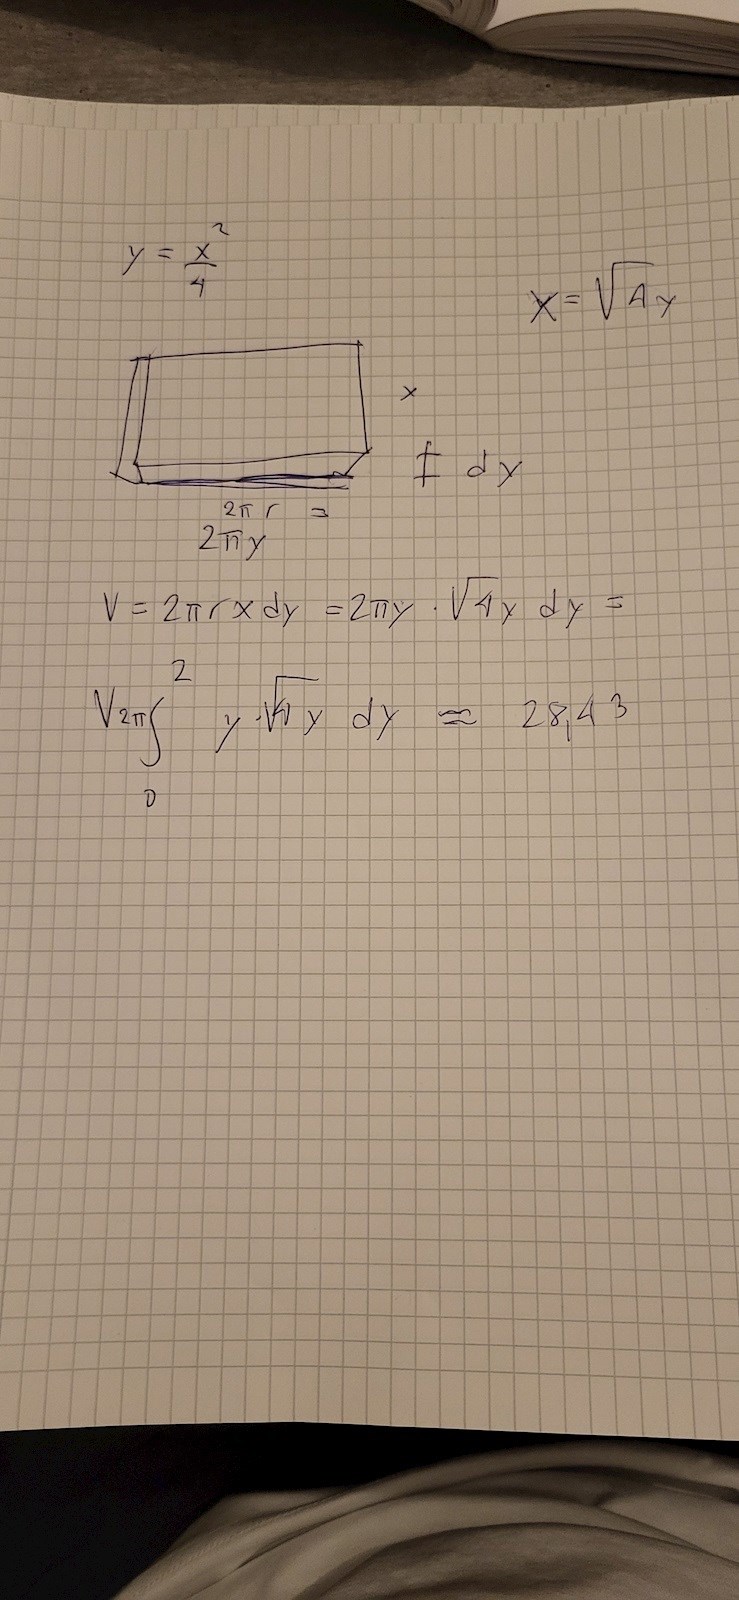 y = x²/4
x = √4y
x
I dy
2πr =
2πy
V = 2πrxdy = 2πy · √4y dy =
V 2π∫₀² y·√4y dy ≈ 28,43